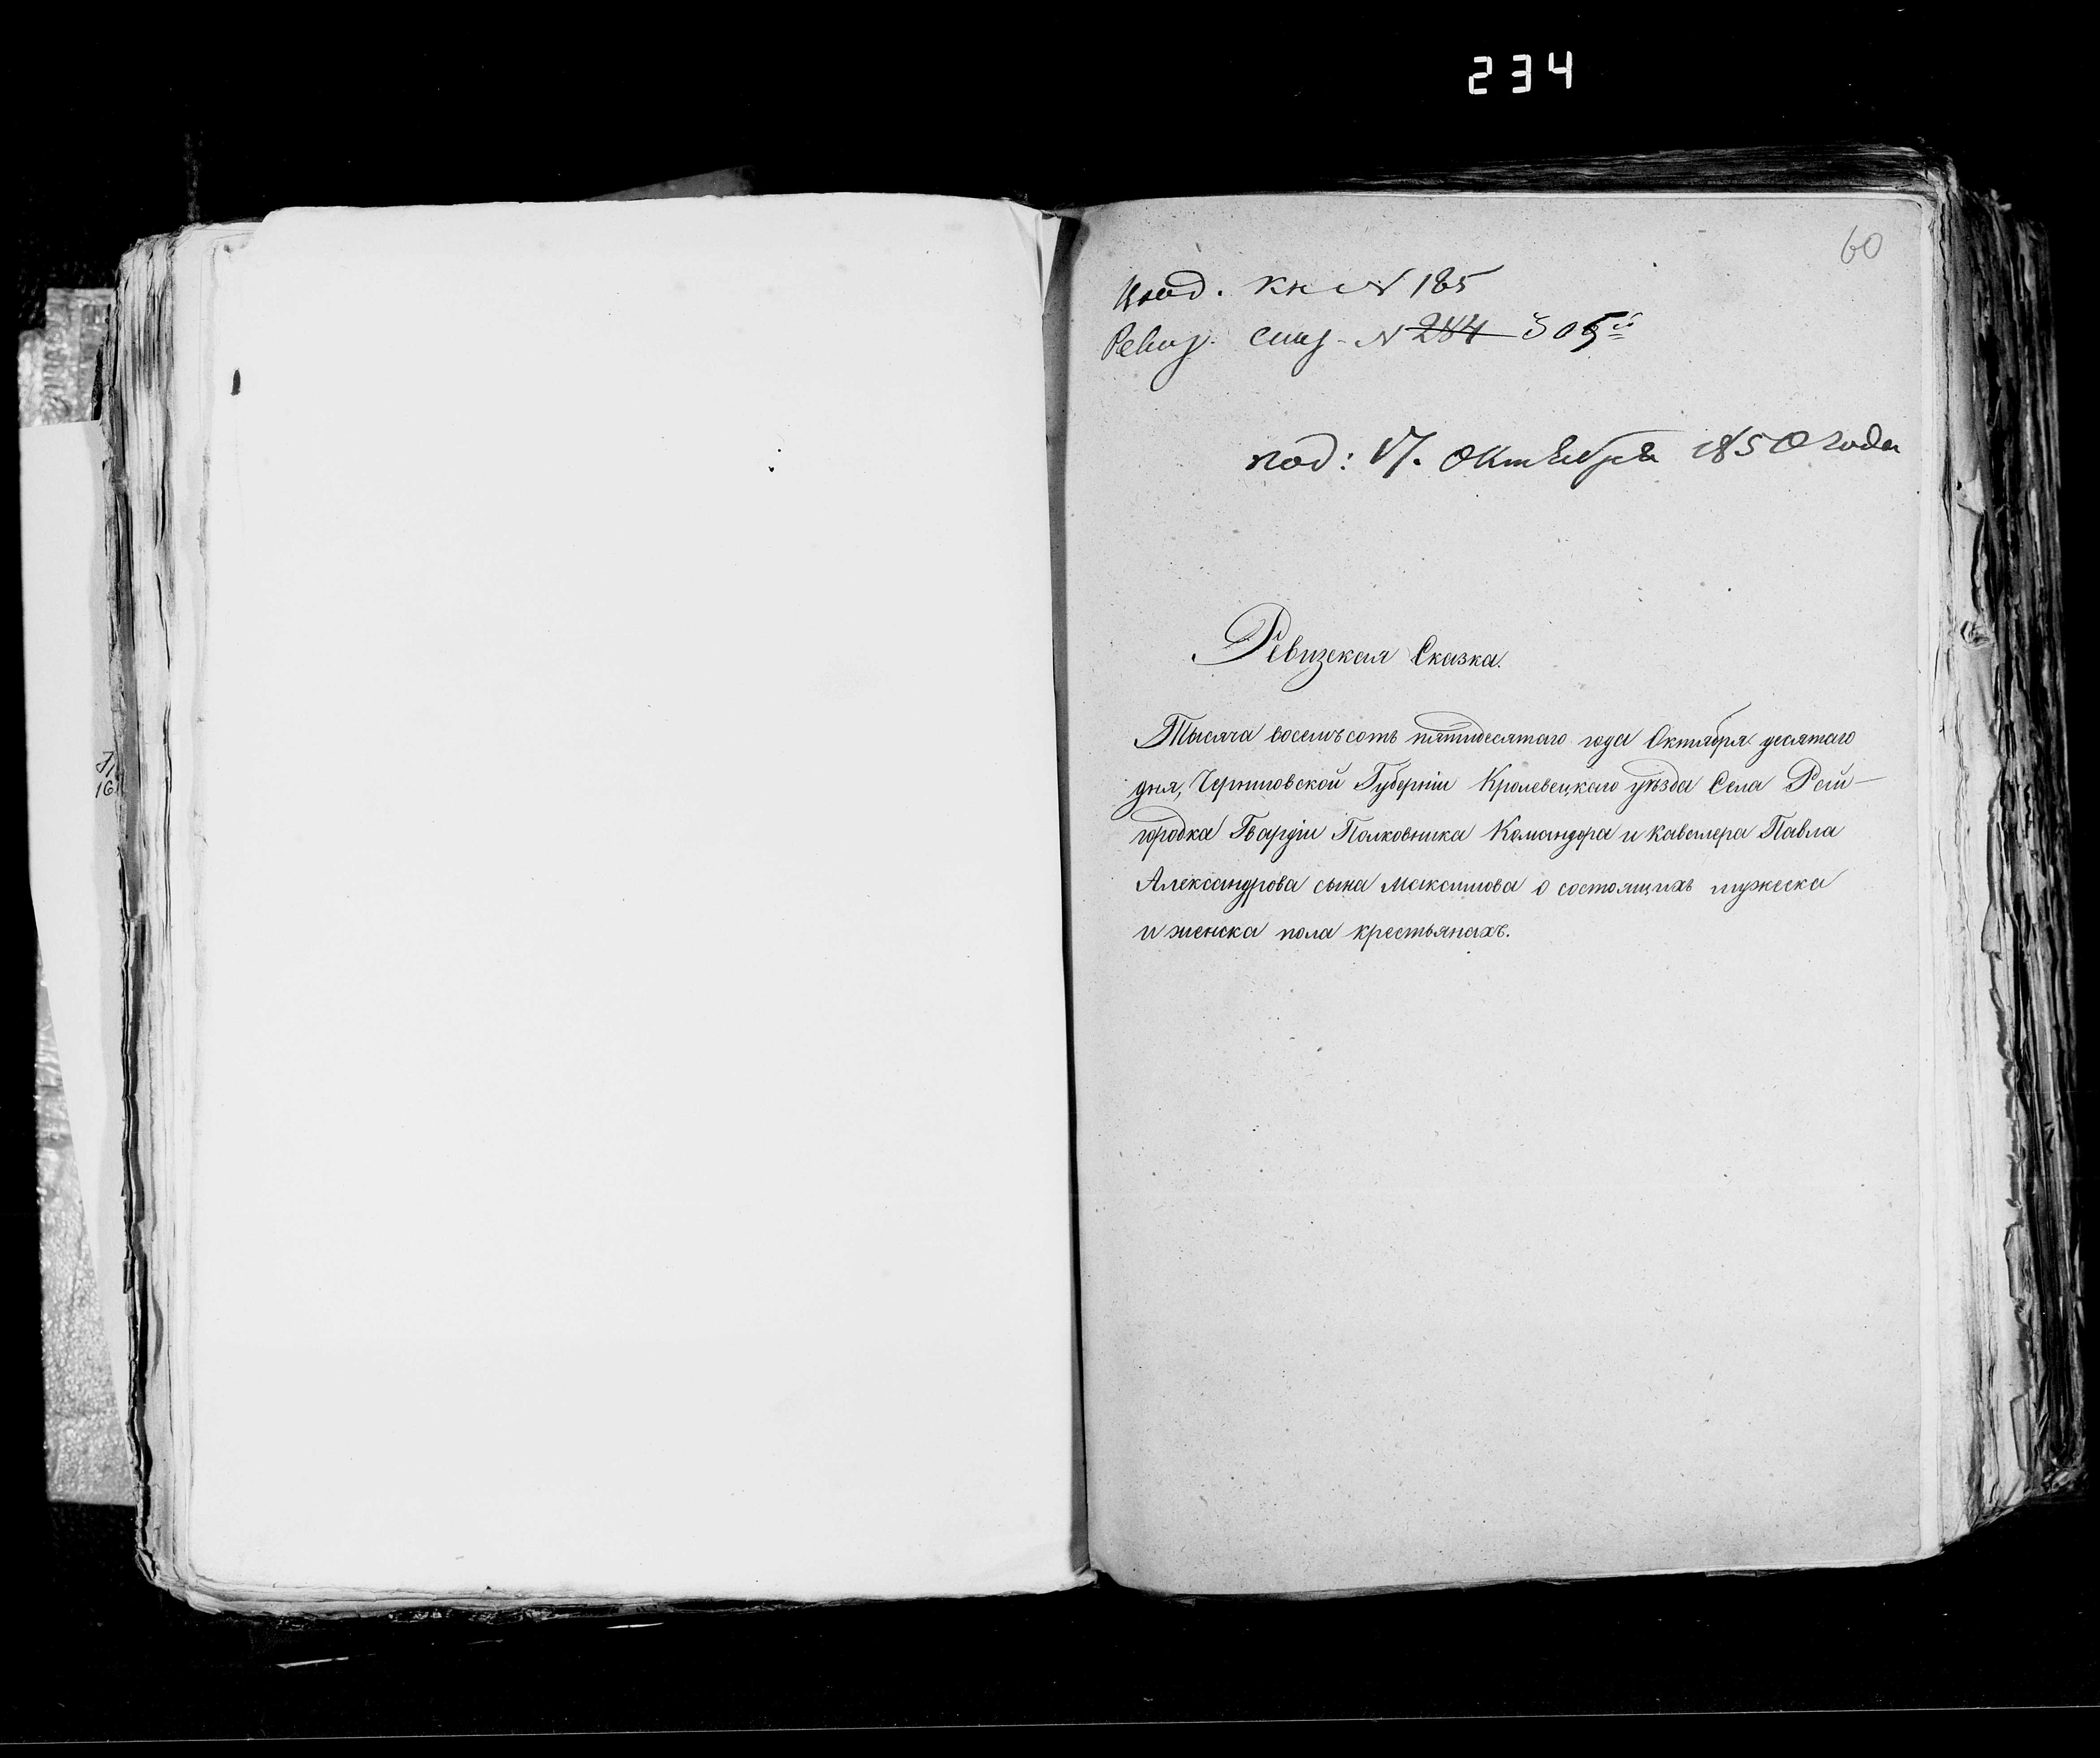 234
60
кн № 185
Ревиз. сказ. № 284 305й
под: 17. Октября 1850 года
Ревизская Сказка.
Тысяча восемьсотъ пятидесятаго года Октября десятаго
дня, Черниговской Губерніи Кролевецкаго уѣзда Села Рай-
городка Гвардіи Полковника Командора и кавалера Павла
Александрова сына Максимова о состоящихъ мужеска
и женска пола крестьянахъ.